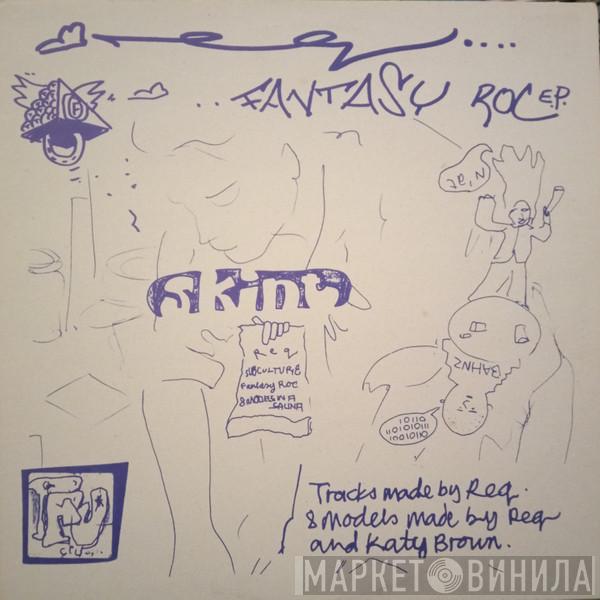 Req....
..FANTASY ROC E.P.
N, at
SKINT
Req
SUBCULTURE
Fantasy ROC
8 MODELS IN A
SAUNA
BAHNZ
01101
11010101
11001010
Tracks made by Req.
8 Models made by Req
and Katy Brown.
МАРКЕТ ВИНИЛА